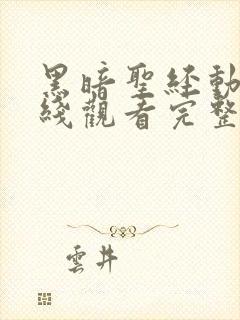 黑暗聖經動
綫觀看完整
雲井